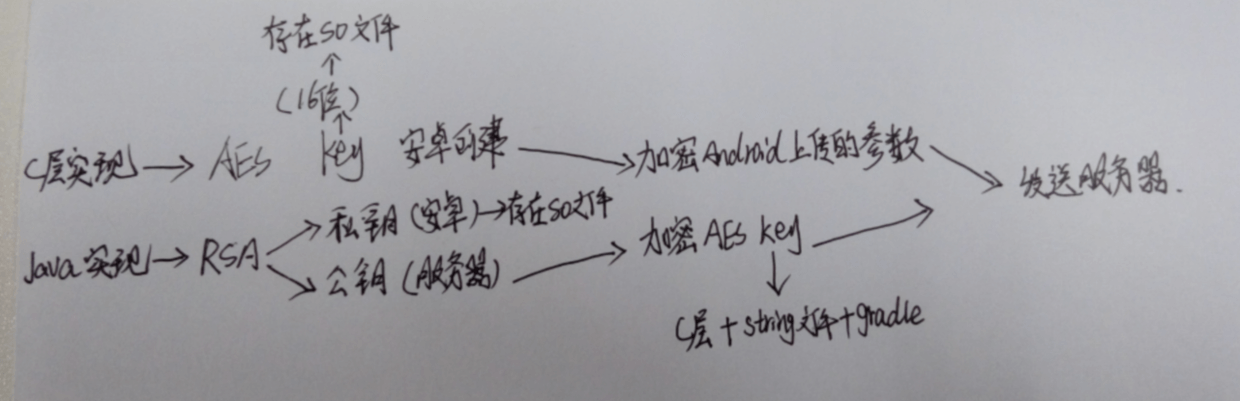 存在SO文件
↑
(16位)
↑
C层实现 → AES key 安卓创建 → 加密Android上传的参数 → 发送服务器.
Java实现 → RSA → 私钥(安卓)→存在SO文件
→ 公钥(服务器) → 加密AES key →
↓
C层+string文件+gradle